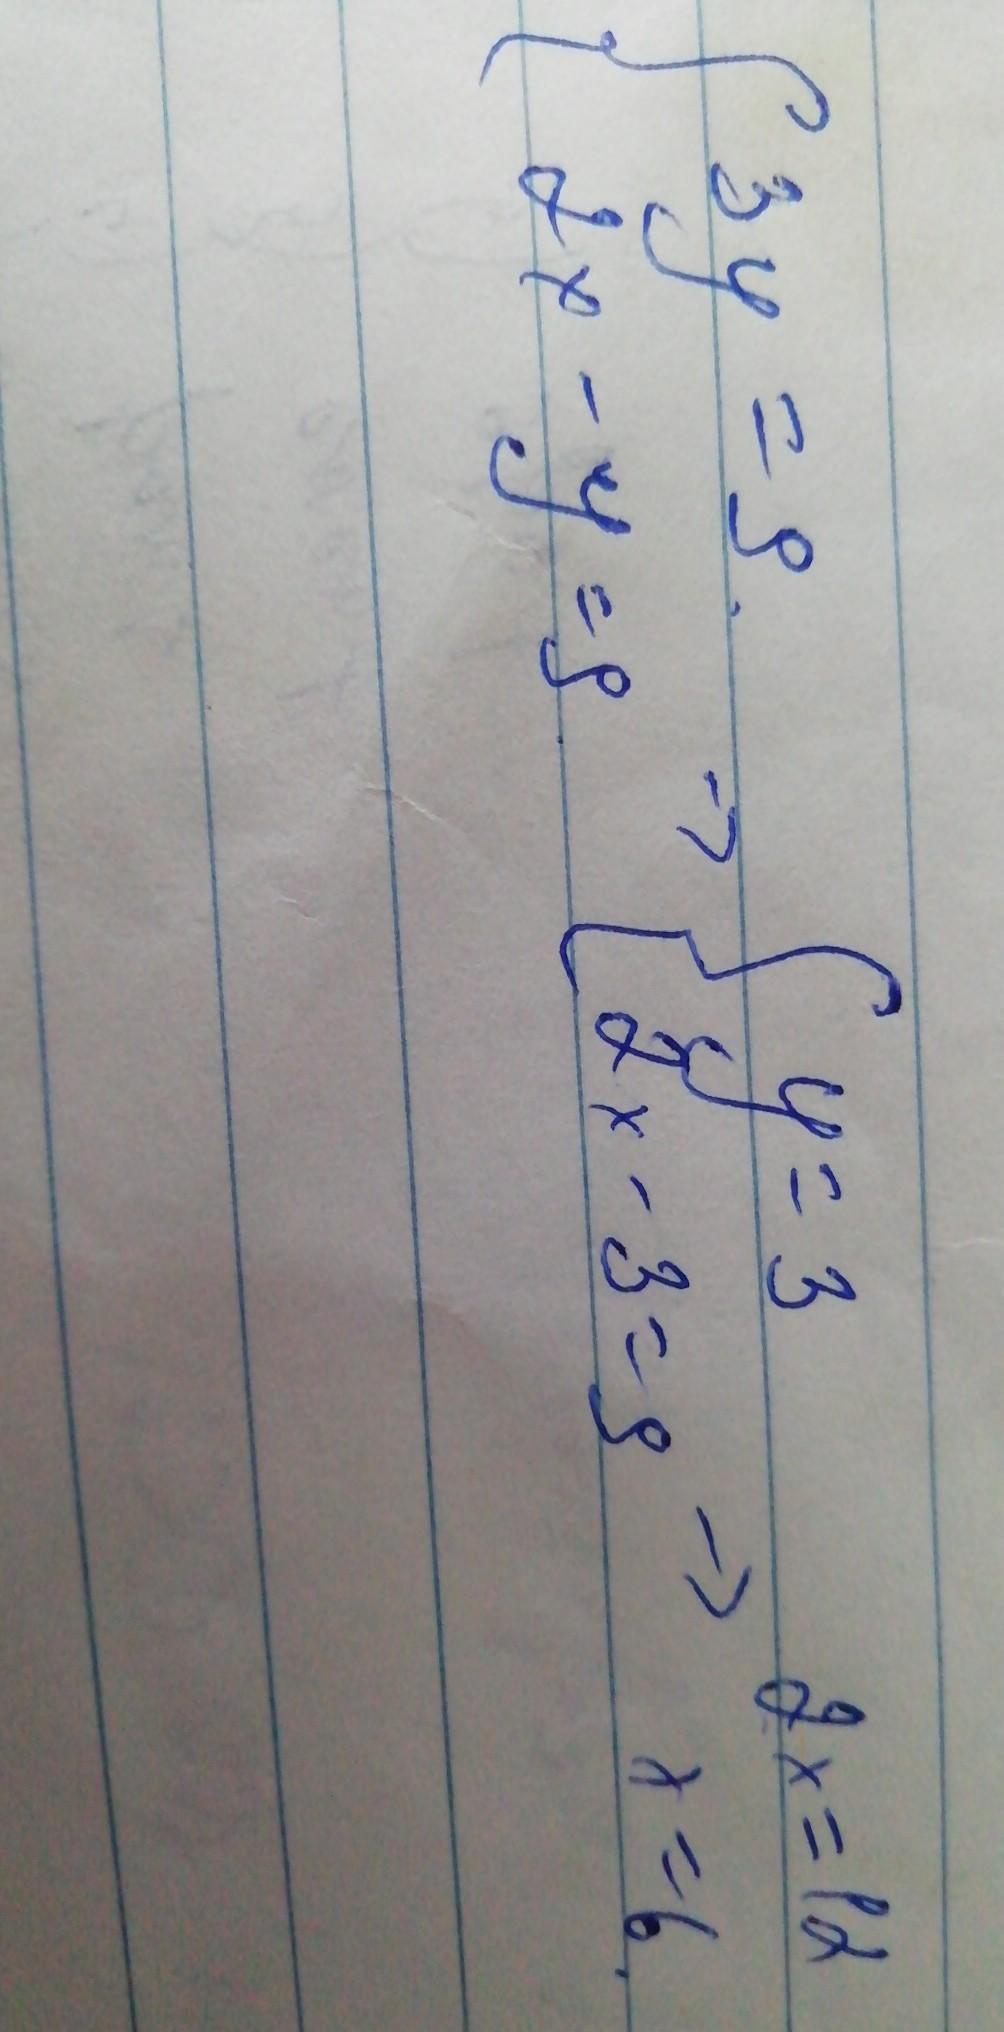 3y = 9.
2x - y = 9.
→
y = 3
2x - 3 = 9
→
2x = 12
x = 6.